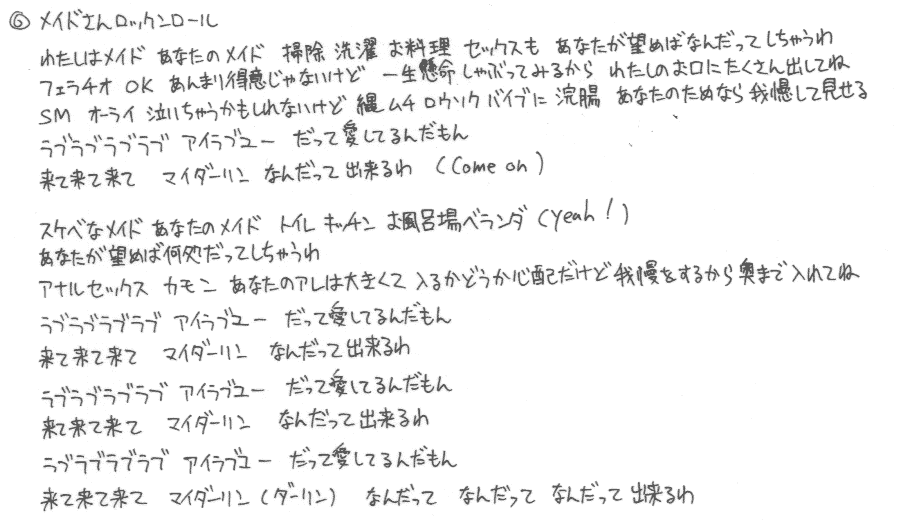 ⑥ メイドさんロックンロール
わたしはメイド あなたのメイド 掃除 洗濯 お料理 セックスも あなたが望めばなんだってしちゃうわ
フェラチオ OK あんまり得意じゃないけど 一生懸命しゃぶってみるから わたしのお口にたくさん出してね
SM オーライ 泣いちゃうかもしれないけど 縄 ムチ ロウソク バイブに 浣腸 あなたのためなら我慢して見せる
ラブラブラブラブ アイラブユー だって愛してるんだもん
来て来て来て マイダーリン なんだって出来るわ (Come on)
スケベなメイド あなたのメイド トイレ キッチン お風呂場ベランダ (Yeah!)
あなたが望めば何処だってしちゃうわ
アナルセックス カモン あなたのアレは大きくて 入るかどうか心配だけど 我慢をするから奥まで入れてね
ラブラブラブラブ アイラブユー だって愛してるんだもん
来て来て来て マイダーリン なんだって出来るわ
ラブラブラブラブ アイラブユー だって愛してるんだもん
来て来て来て マイダーリン なんだって出来るわ
ラブラブラブラブ アイラブユー だって愛してるんだもん
来て来て来て マイダーリン (ダーリン) なんだって なんだって なんだって出来るわ